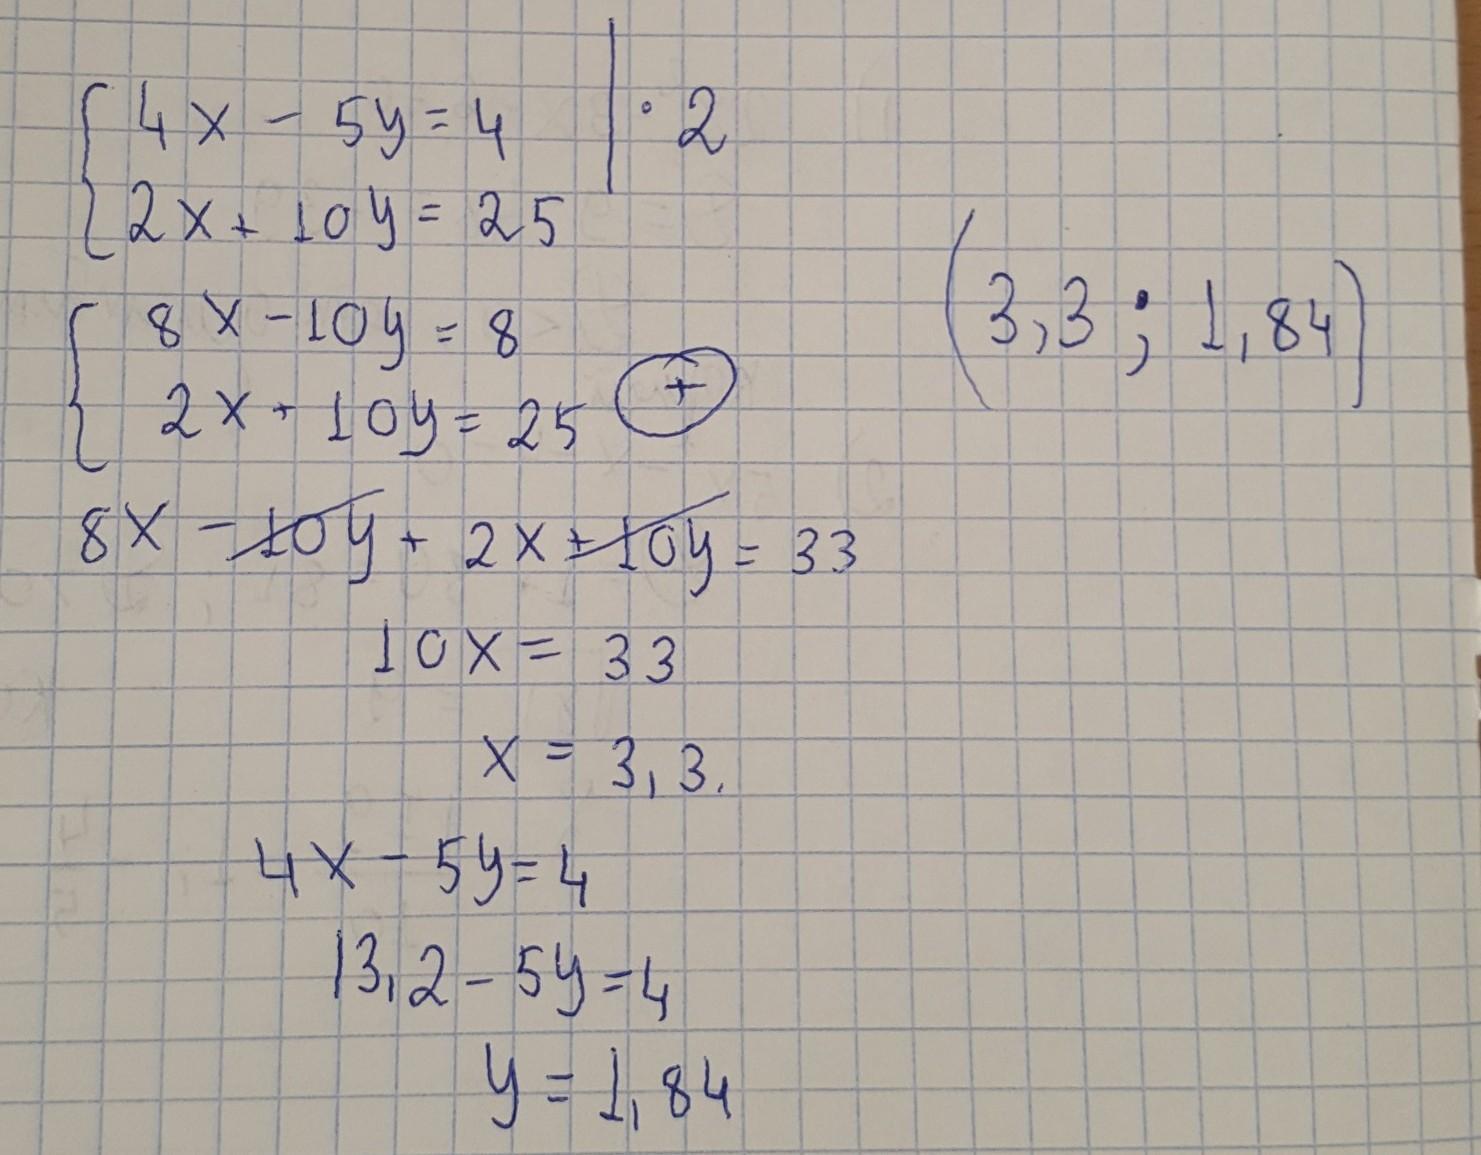 4x - 5y = 4 | · 2
2x + 10y = 25
8x - 10y = 8
2x + 10y = 25 +
8x - 10y + 2x + 10y = 33
10x = 33
x = 3,3.
4x - 5y = 4
13,2 - 5y = 4
y = 1,84
(3,3 ; 1,84)